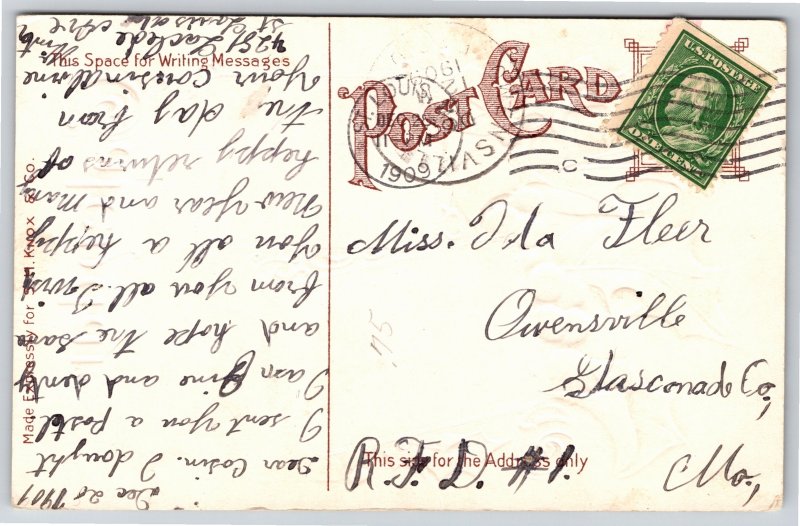 This Space for Writing Messages
POST CARD
Made Expressly for S.H. Knox & Co.
U.S. POSTAGE
ONE CENT
ST. LOUIS
1909
Dec 20 1909
Dear Cosin. I dought
I sent you a postel
I am fine and denty
and hope the same
from you all. I wish
you all a heppy
New Year and many
heppy returns of
the day from
your cousin
4251 Laclede Ave
St Louis
Miss. Ida Fleer
Owensville
Glasconade Co,
R.F.D. #1.
Mo,
This side for the Address only